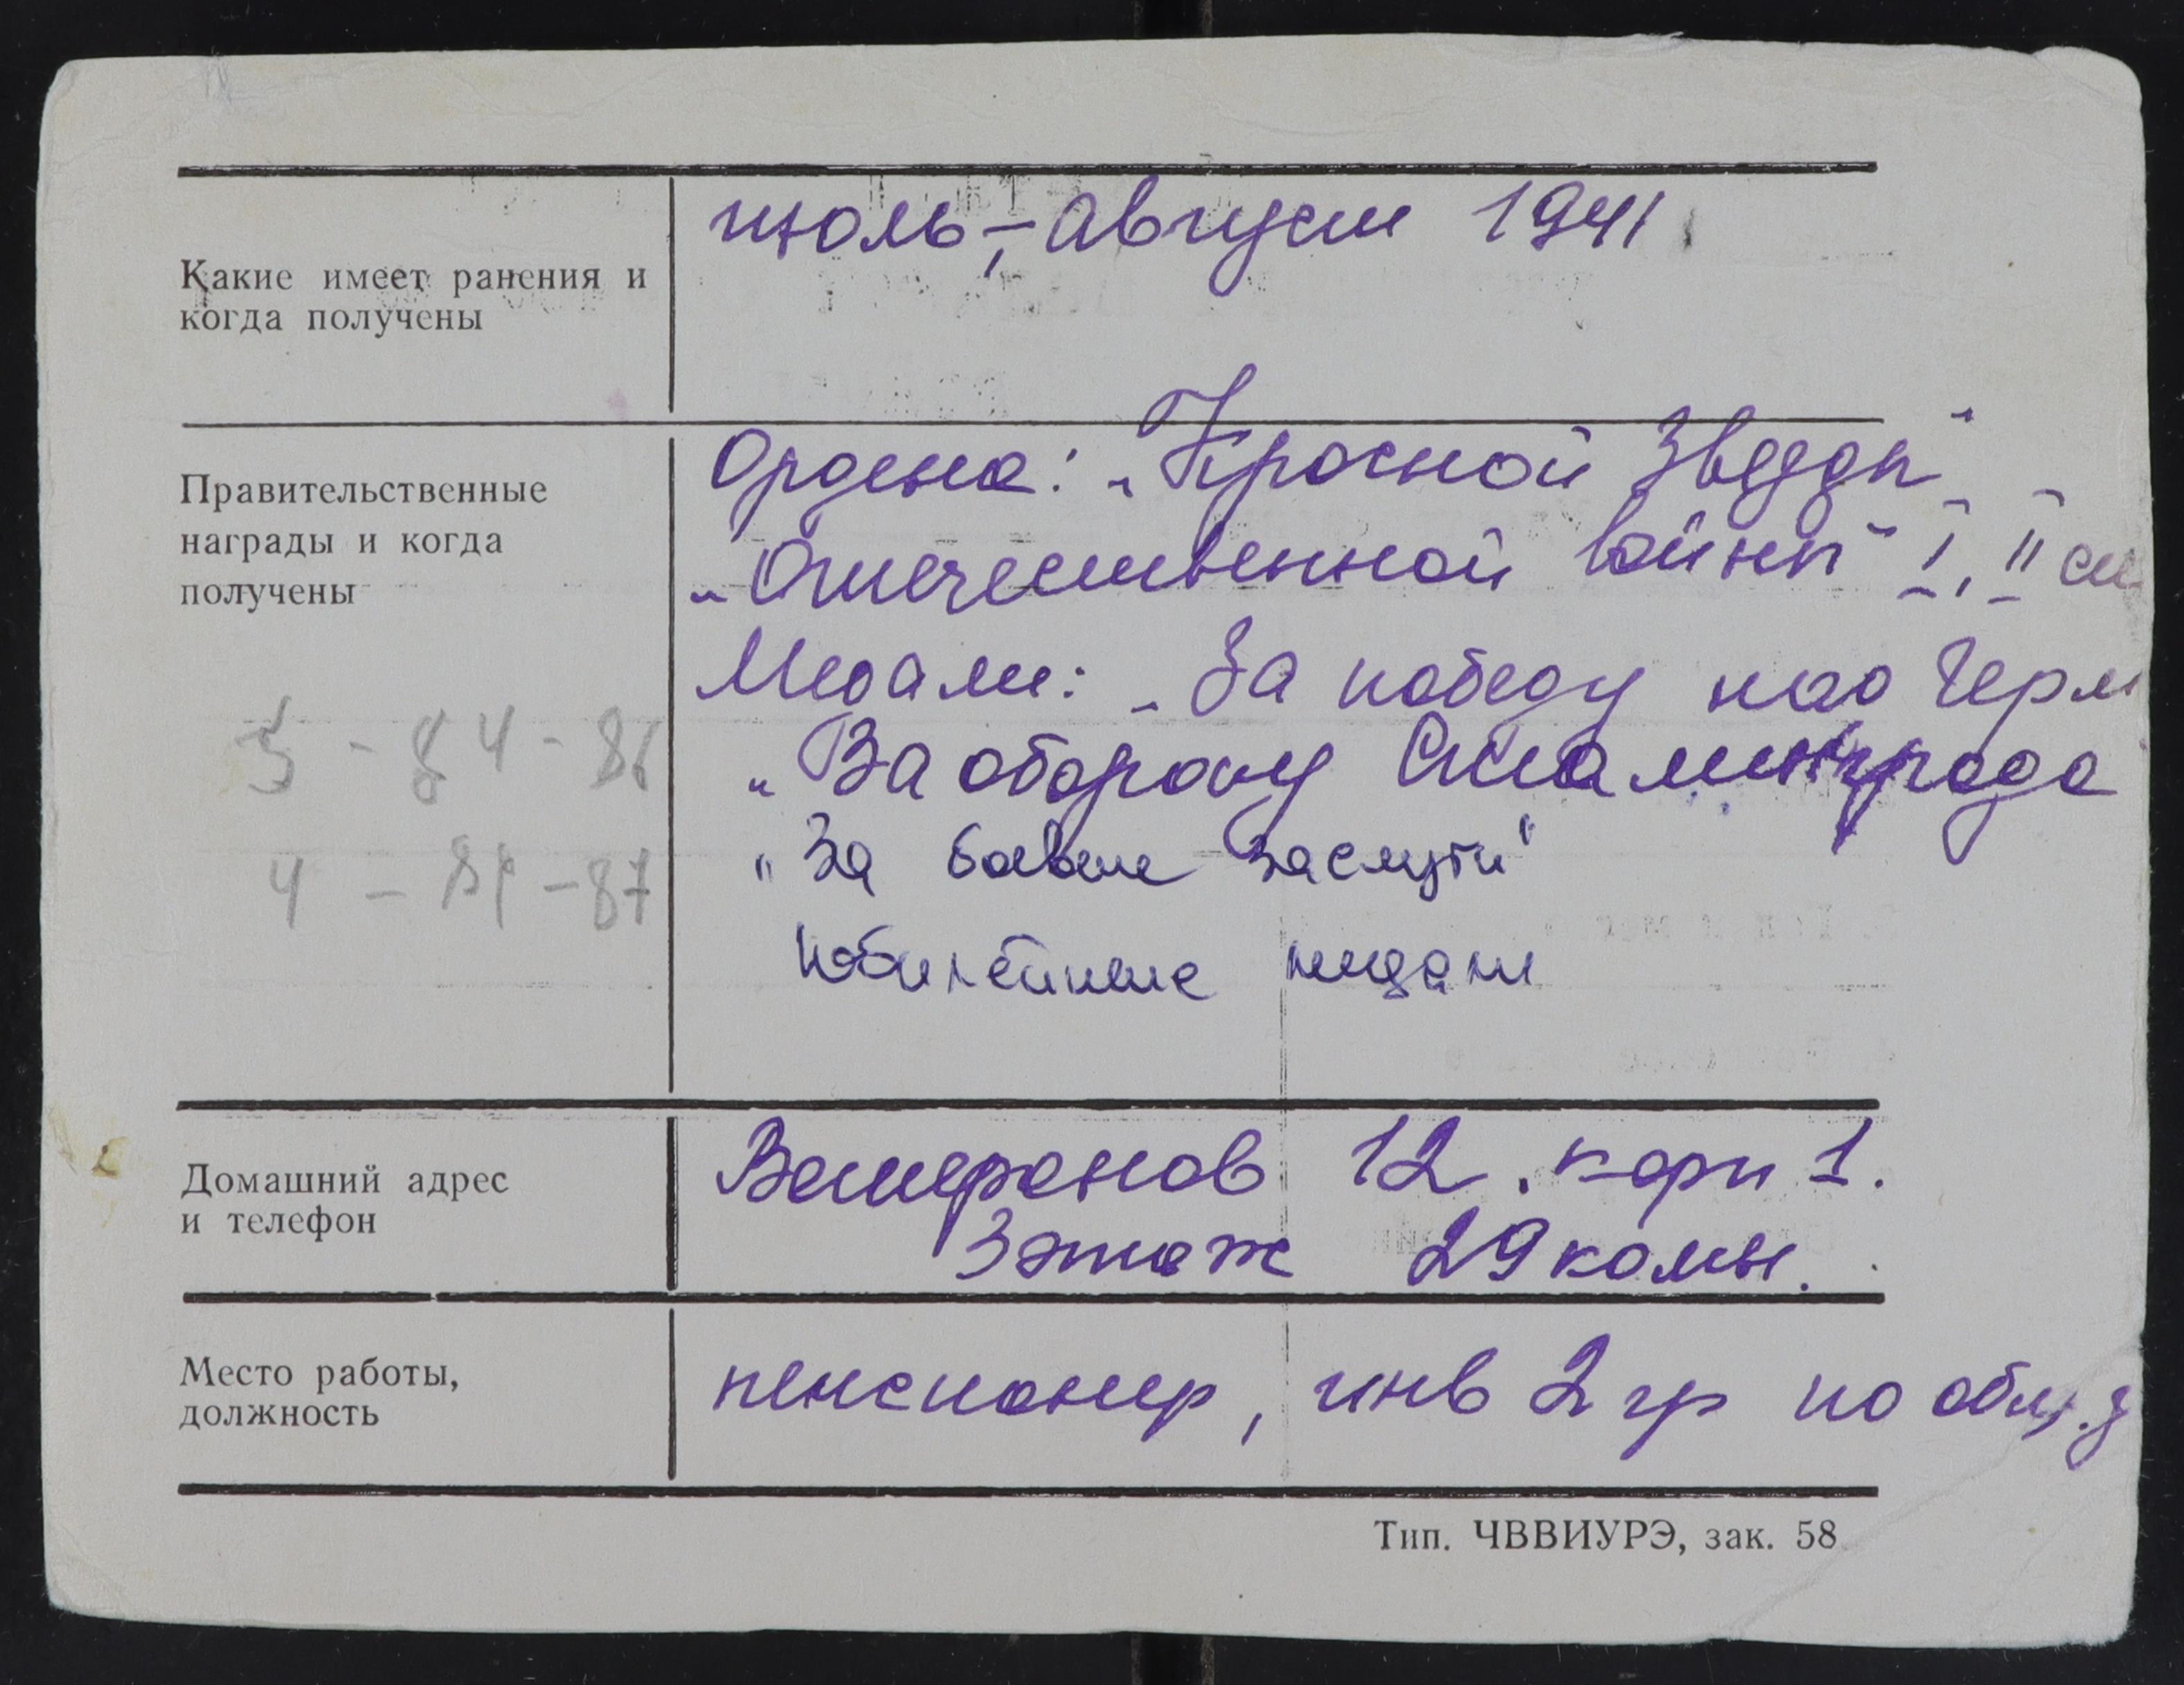 Какие имеет ранения и
когда получены
июль, – август 1941
Правительственные
награды и когда
получены
Ордена: „Красной Звезды"
„Отечественной войны" I, II ст
Медали: „За победу над Герм
„За оборону Сталинграда
„За боевые заслуги"
Юбилейные медали
5 - 84 - 86
4 - - 87
Домашний адрес
и телефон
Ветеранов 12. корп 1.
3 этаж 29 комн.
Место работы,
должность
пенсионер, инв 2 гр по общ. з
Тип. ЧВВИУРЭ, зак. 58